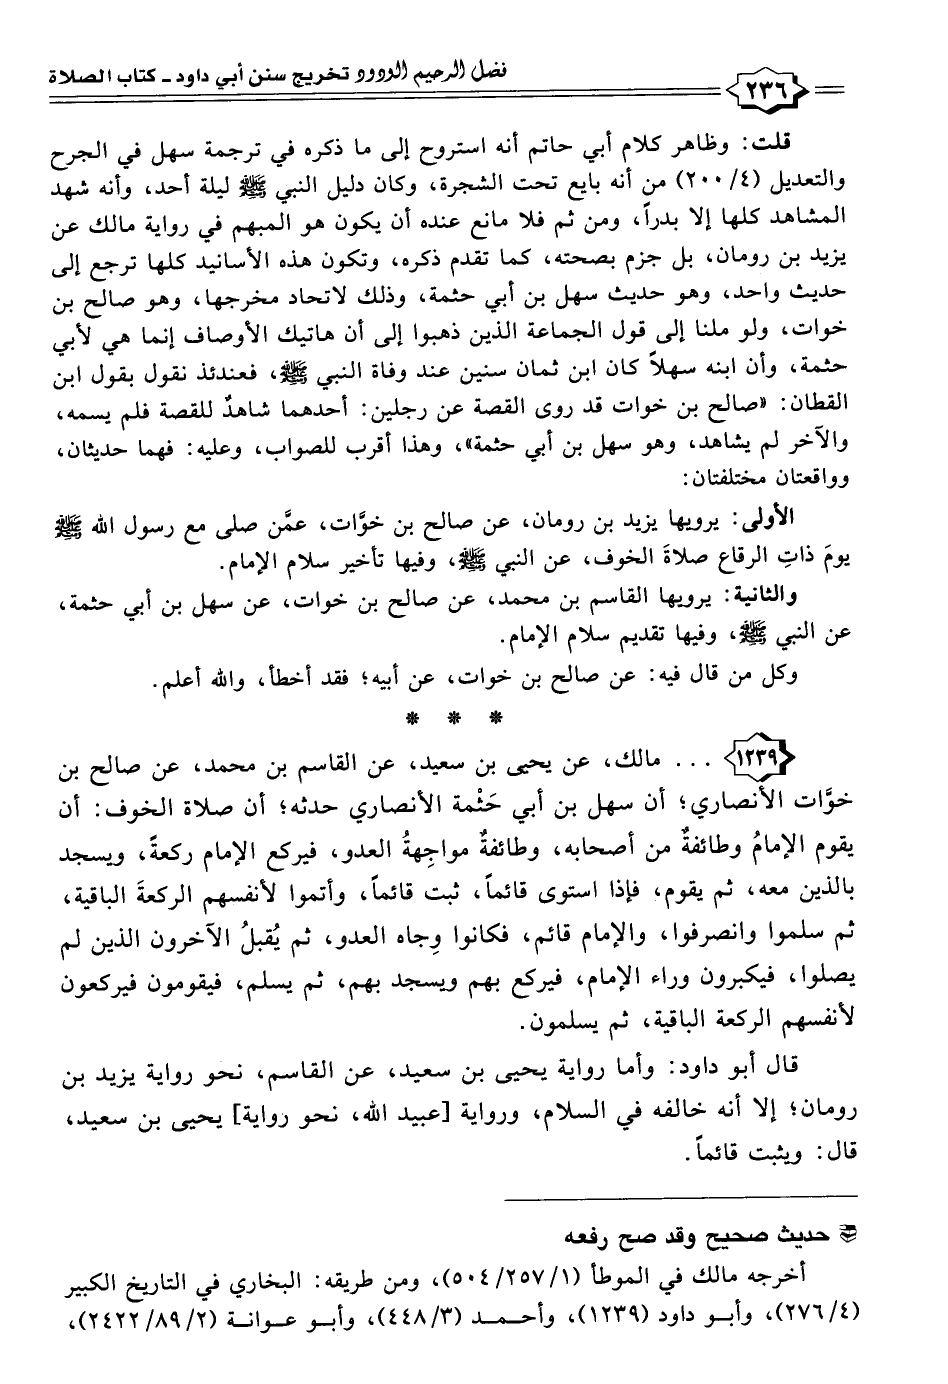 فضل الرحيم الودود تخريج سنن أبي داود - كتاب الصلاة
٢٣٦
قلت: وظاهر كلام أبي حاتم أنه استروح إلى ما ذكره في ترجمة سهل في الجرح
والتعديل (٤/ ٢٠٠) من أنه بايع تحت الشجرة، وكان دليل النبي ﷺ ليلة أحد، وأنه شهد
المشاهد كلها إلا بدراً، ومن ثم فلا مانع عنده أن يكون هو المبهم في رواية مالك عن
يزيد بن رومان، بل جزم بصحته، كما تقدم ذكره، وتكون هذه الأسانيد كلها ترجع إلى
حديث واحد، وهو حديث سهل بن أبي حثمة، وذلك لاتحاد مخرجها، وهو صالح بن
خوات، ولو ملنا إلى قول الجماعة الذين ذهبوا إلى أن هاتيك الأوصاف إنما هي لأبي
حثمة، وأن ابنه سهلاً كان ابن ثمان سنين عند وفاة النبي ﷺ، فعندئذ نقول بقول ابن
القطان: «صالح بن خوات قد روى القصة عن رجلين: أحدهما شاهدٌ للقصة فلم يسمه،
والآخر لم يشاهد، وهو سهل بن أبي حثمة»، وهذا أقرب للصواب، وعليه: فهما حديثان،
وواقعتان مختلفتان:
الأولى: يرويها يزيد بن رومان، عن صالح بن خوَّات، عمَّن صلى مع رسول الله ﷺ
يومَ ذاتِ الرقاع صلاةَ الخوف، عن النبي ﷺ، وفيها تأخير سلام الإمام.
والثانية: يرويها القاسم بن محمد، عن صالح بن خوات، عن سهل بن أبي حثمة،
عن النبي ﷺ، وفيها تقديم سلام الإمام.
وكل من قال فيه: عن صالح بن خوات، عن أبيه؛ فقد أخطأ، والله أعلم.
* * *
١٢٣٩ ... مالك، عن يحيى بن سعيد، عن القاسم بن محمد، عن صالح بن
خوَّات الأنصاري؛ أن سهل بن أبي حَثْمة الأنصاري حدثه؛ أن صلاة الخوف: أن
يقوم الإمامُ وطائفةٌ من أصحابه، وطائفةٌ مواجِهةُ العدو، فيركع الإمام ركعةً، ويسجد
بالذين معه، ثم يقوم، فإذا استوى قائماً، ثبت قائماً، وأتموا لأنفسهم الركعةَ الباقية،
ثم سلموا وانصرفوا، والإمام قائم، فكانوا وِجاه العدو، ثم يُقبلُ الآخرون الذين لم
يصلوا، فيكبرون وراء الإمام، فيركع بهم ويسجد بهم، ثم يسلم، فيقومون فيركعون
لأنفسهم الركعة الباقية، ثم يسلمون.
قال أبو داود: وأما رواية يحيى بن سعيد، عن القاسم، نحو رواية يزيد بن
رومان؛ إلا أنه خالفه في السلام، ورواية [عبيد الله، نحو رواية] يحيى بن سعيد،
قال: ويثبت قائماً.
حديث صحيح وقد صح رفعه
أخرجه مالك في الموطأ (١/ ٢٥٧/ ٥٠٤)، ومن طريقه: البخاري في التاريخ الكبير
(٤/ ٢٧٦)، وأبو داود (١٢٣٩)، وأحمد (٣/ ٤٤٨)، وأبو عوانة (٢/ ٨٩/ ٢٤٢٢)،